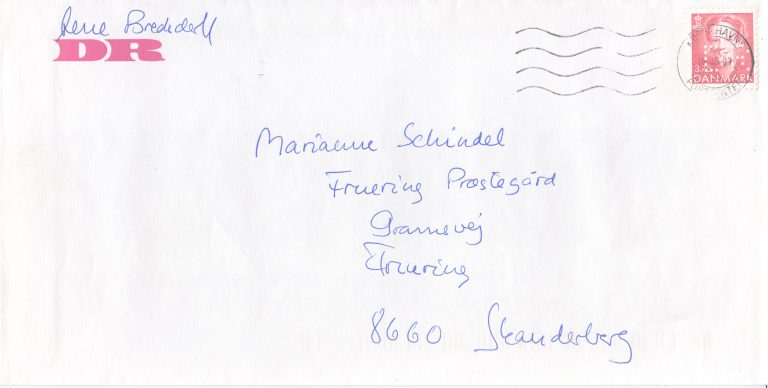 Rene
DR
DANMARK
Marianne Schindel
Fruering Præstegård
Gramsvej
Fruering
8660 Skanderborg